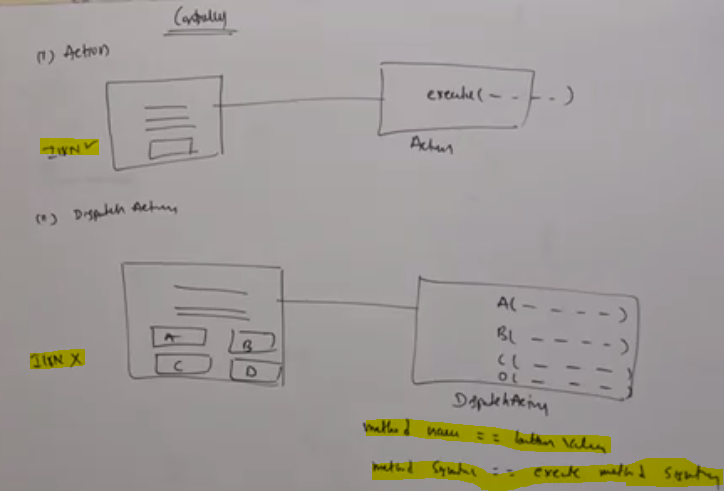 Controller
(1) Action
execute( - - - - )
I18N ✓
Action
(2) Dispatch Action
A( - - - - )
A B
B( - - - - )
I18N X
C D
C( - - - )
D( - - - )
DispatchAction
method name == button value
method syntax == execute method syntax